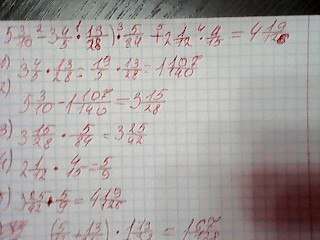 5 3/10 - 3 4/5 · 13/28 : 5/84 + 2 1/12 · 4/15 = 4 19/126
1) 3 4/5 · 13/28 = 19/5 · 13/28 = 1 107/140
2) 5 3/10 - 1 107/140 = 3 15/28
3) 3 15/28 · 5/84 = 3 25/42
4) 2 1/12 · 4/15 = 5/9
3 25/42 + 5/9 = 4 19/126